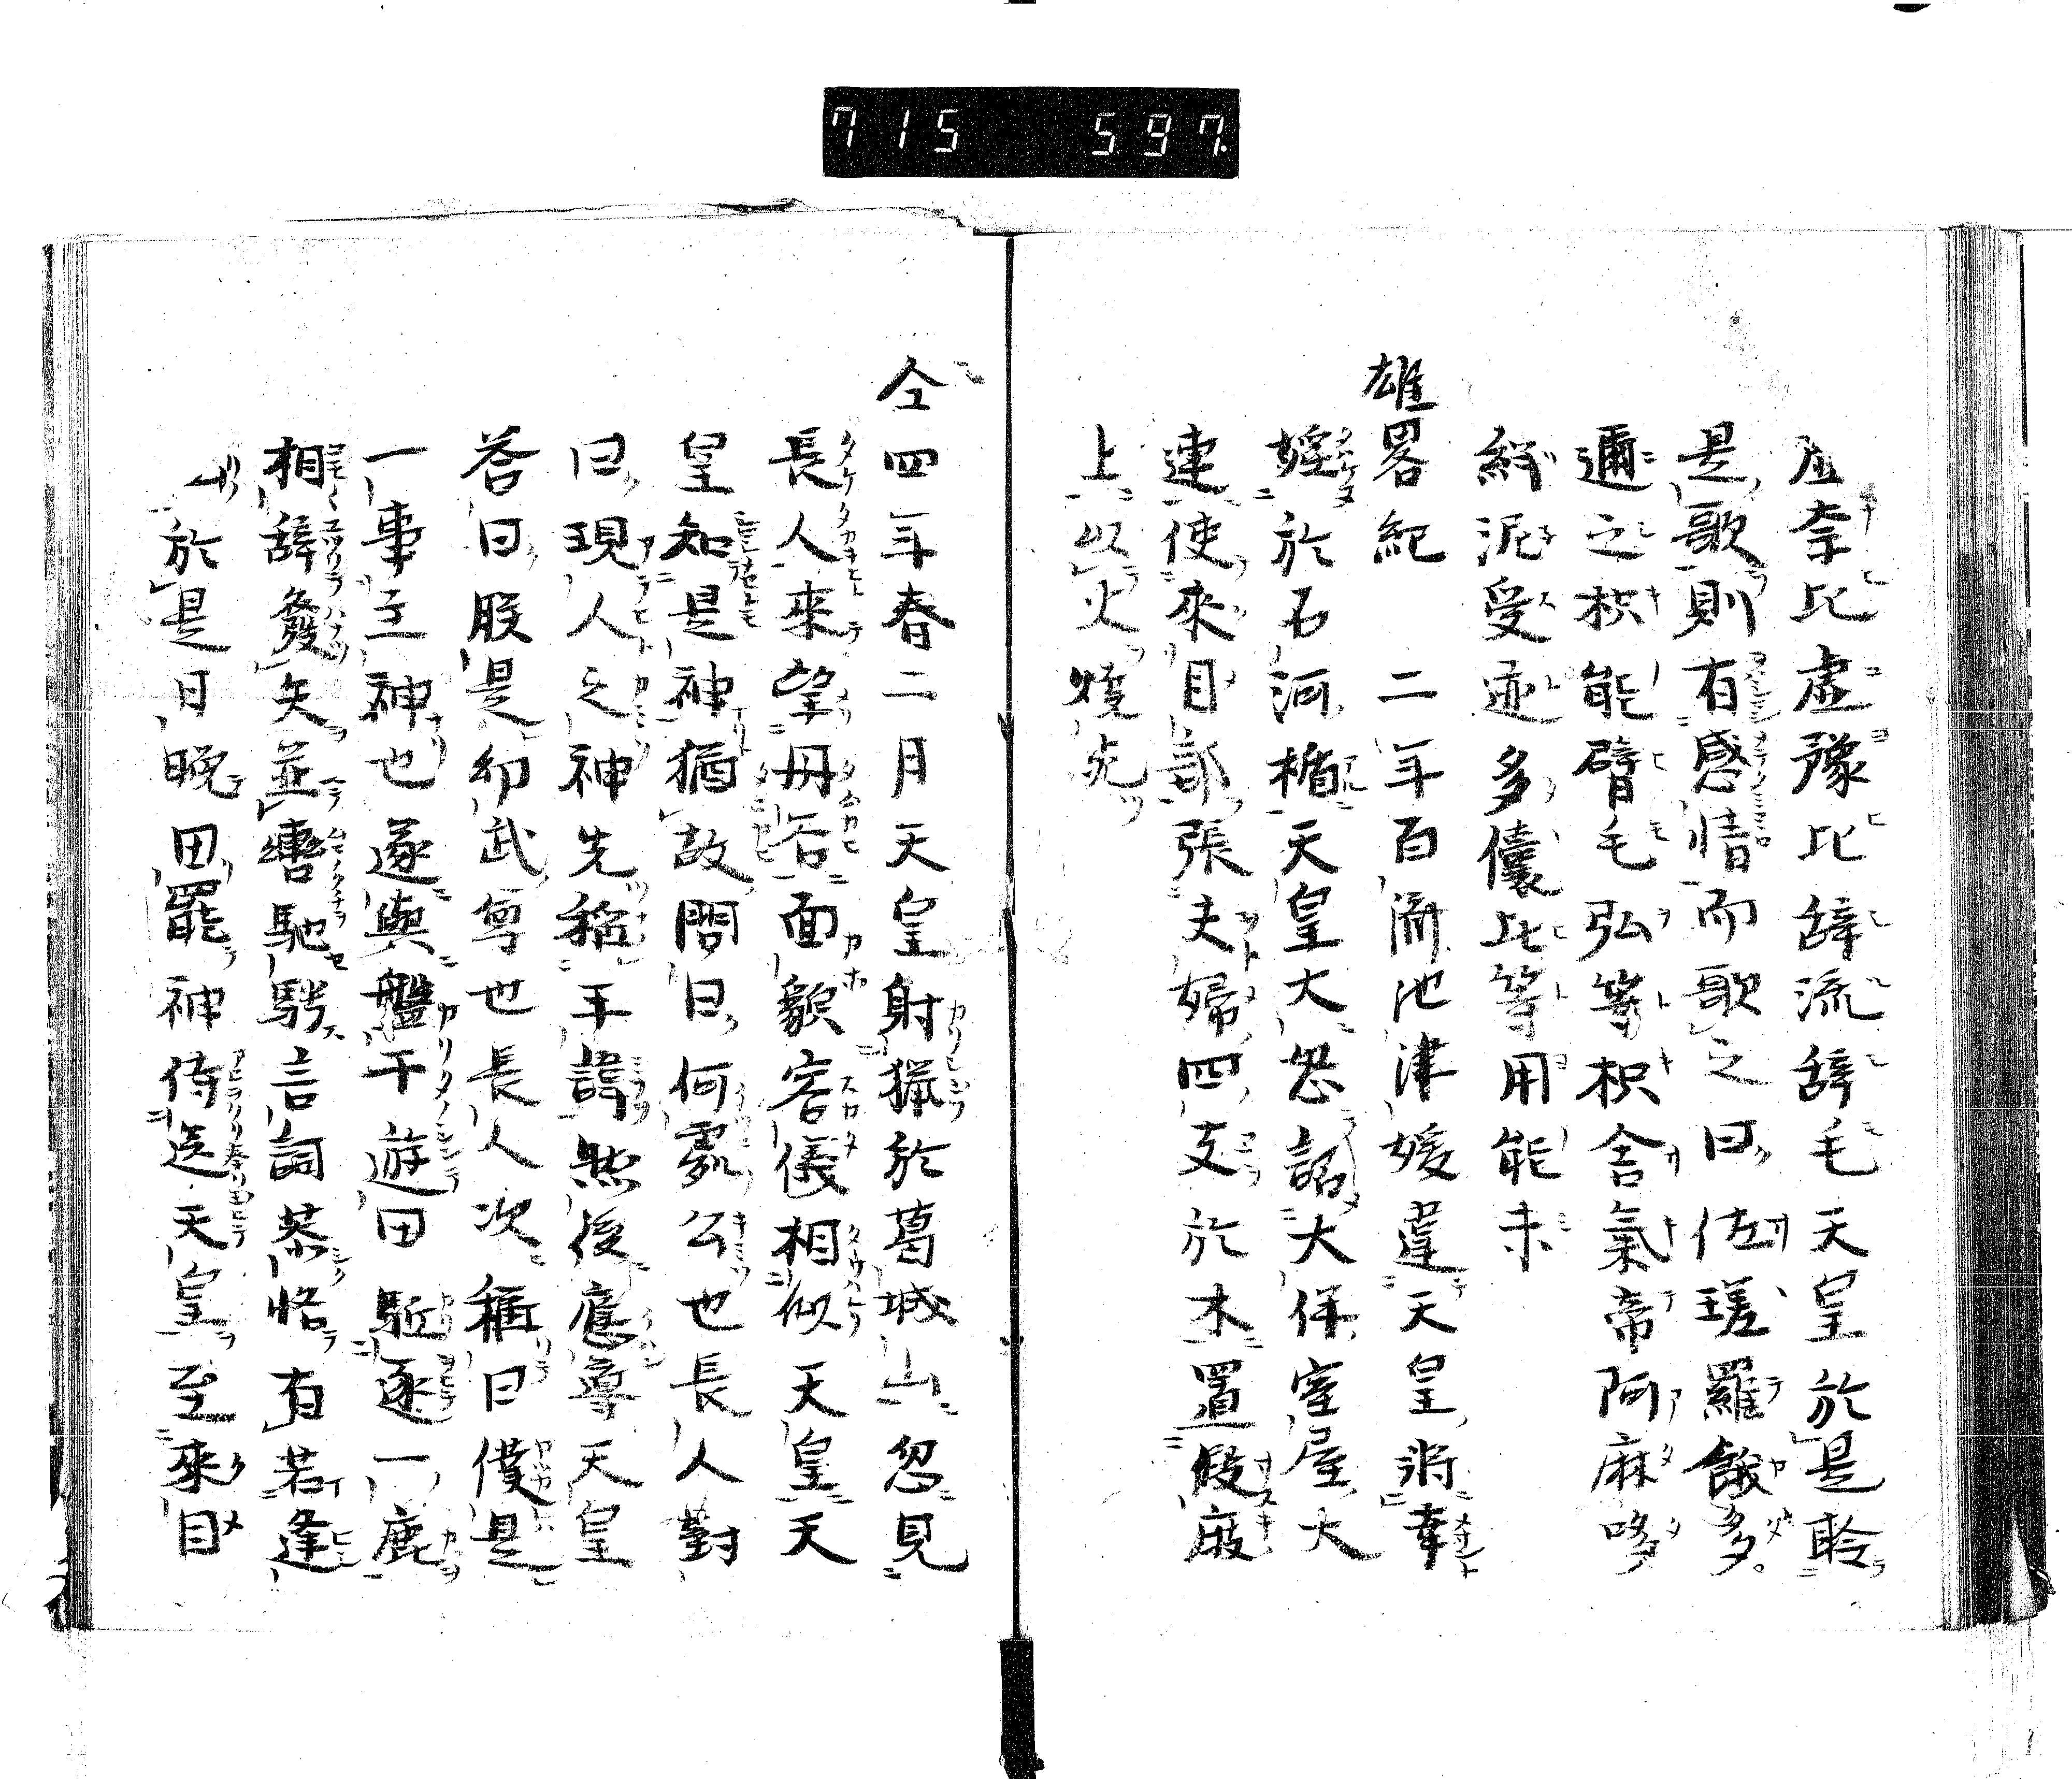 715 597.
奈比虚豫比辞流辞毛天皇於是聆
是歌則有感情而歌之曰佐瑳羅餓多
邇之枳能臂毛弘等枳舎氣帝阿麻哆
絆泥受迹多儾比等用能未
雄畧紀 二年百濟池津媛違天皇将幸
婬於石河楯天皇大怒詔大伴室屋大
連使来目部張夫婦四支於木置假庪
上以火燒死
仝四年春二月天皇射獵於葛城山忽見
長人来望丹谷面貌容儀相似天皇天
皇知是神猶故問曰何處公也長人對
曰現人之神先稱王諱然後應導天皇
答曰朕是幼武尊也長人次稱曰僕是
一事主神也遂與盤于遊田駈逐一鹿
相辞發矢並轡馳騁言詞恭恪有若逢
仙於是日晩田罷神侍送天皇至來目